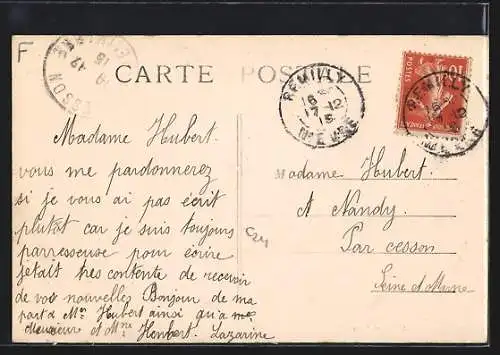 F
CARTE POSTALE
REMILLY
16
17-12
15
NIÈVRE
REMILLY
POSTES
10
CESSON
Madame Hubert.
vous me pardonnerez
si je vous ai pas écrit
plutot car je suis toujours
parresseuse pour écrire
jetait tres contente de recevoir
de vos nouvelles Bonjour de ma
part a Mr Hubert ainsi qu'a
monsieure et Mme Lazarine
Madame Hubert.
A Nandy.
Par cesson
Seine et Marne